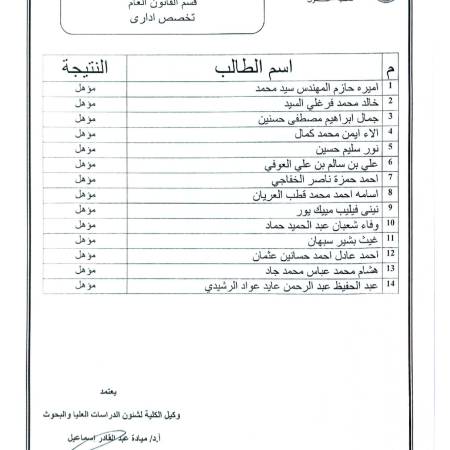 قسم القانون العام
تخصص ادارى
م اسم الطالب النتيجة
1 اميره حازم المهندس سيد محمد مؤهل
2 خالد محمد فرغلي السيد مؤهل
3 جمال ابراهيم مصطفى حسنين مؤهل
4 الاء ايمن محمد كمال مؤهل
5 نور سليم حسين مؤهل
6 علي بن سالم بن علي العوفي مؤهل
7 احمد حمزة ناصر الخفاجي مؤهل
8 اسامه احمد محمد قطب العريان مؤهل
9 نينى فيليب مييك يور مؤهل
10 وفاء شعبان عبد الحميد حماد مؤهل
11 غيث بشير سبهان مؤهل
12 احمد عادل احمد حسانين عثمان مؤهل
13 هشام محمد عباس محمد جاد مؤهل
14 عبد الحفيظ عبد الرحمن عايد عواد الرشيدي مؤهل
يعتمد
وكيل الكلية لشئون الدراسات العليا والبحوث
أ.د/ ميادة عبد القادر اسماعيل